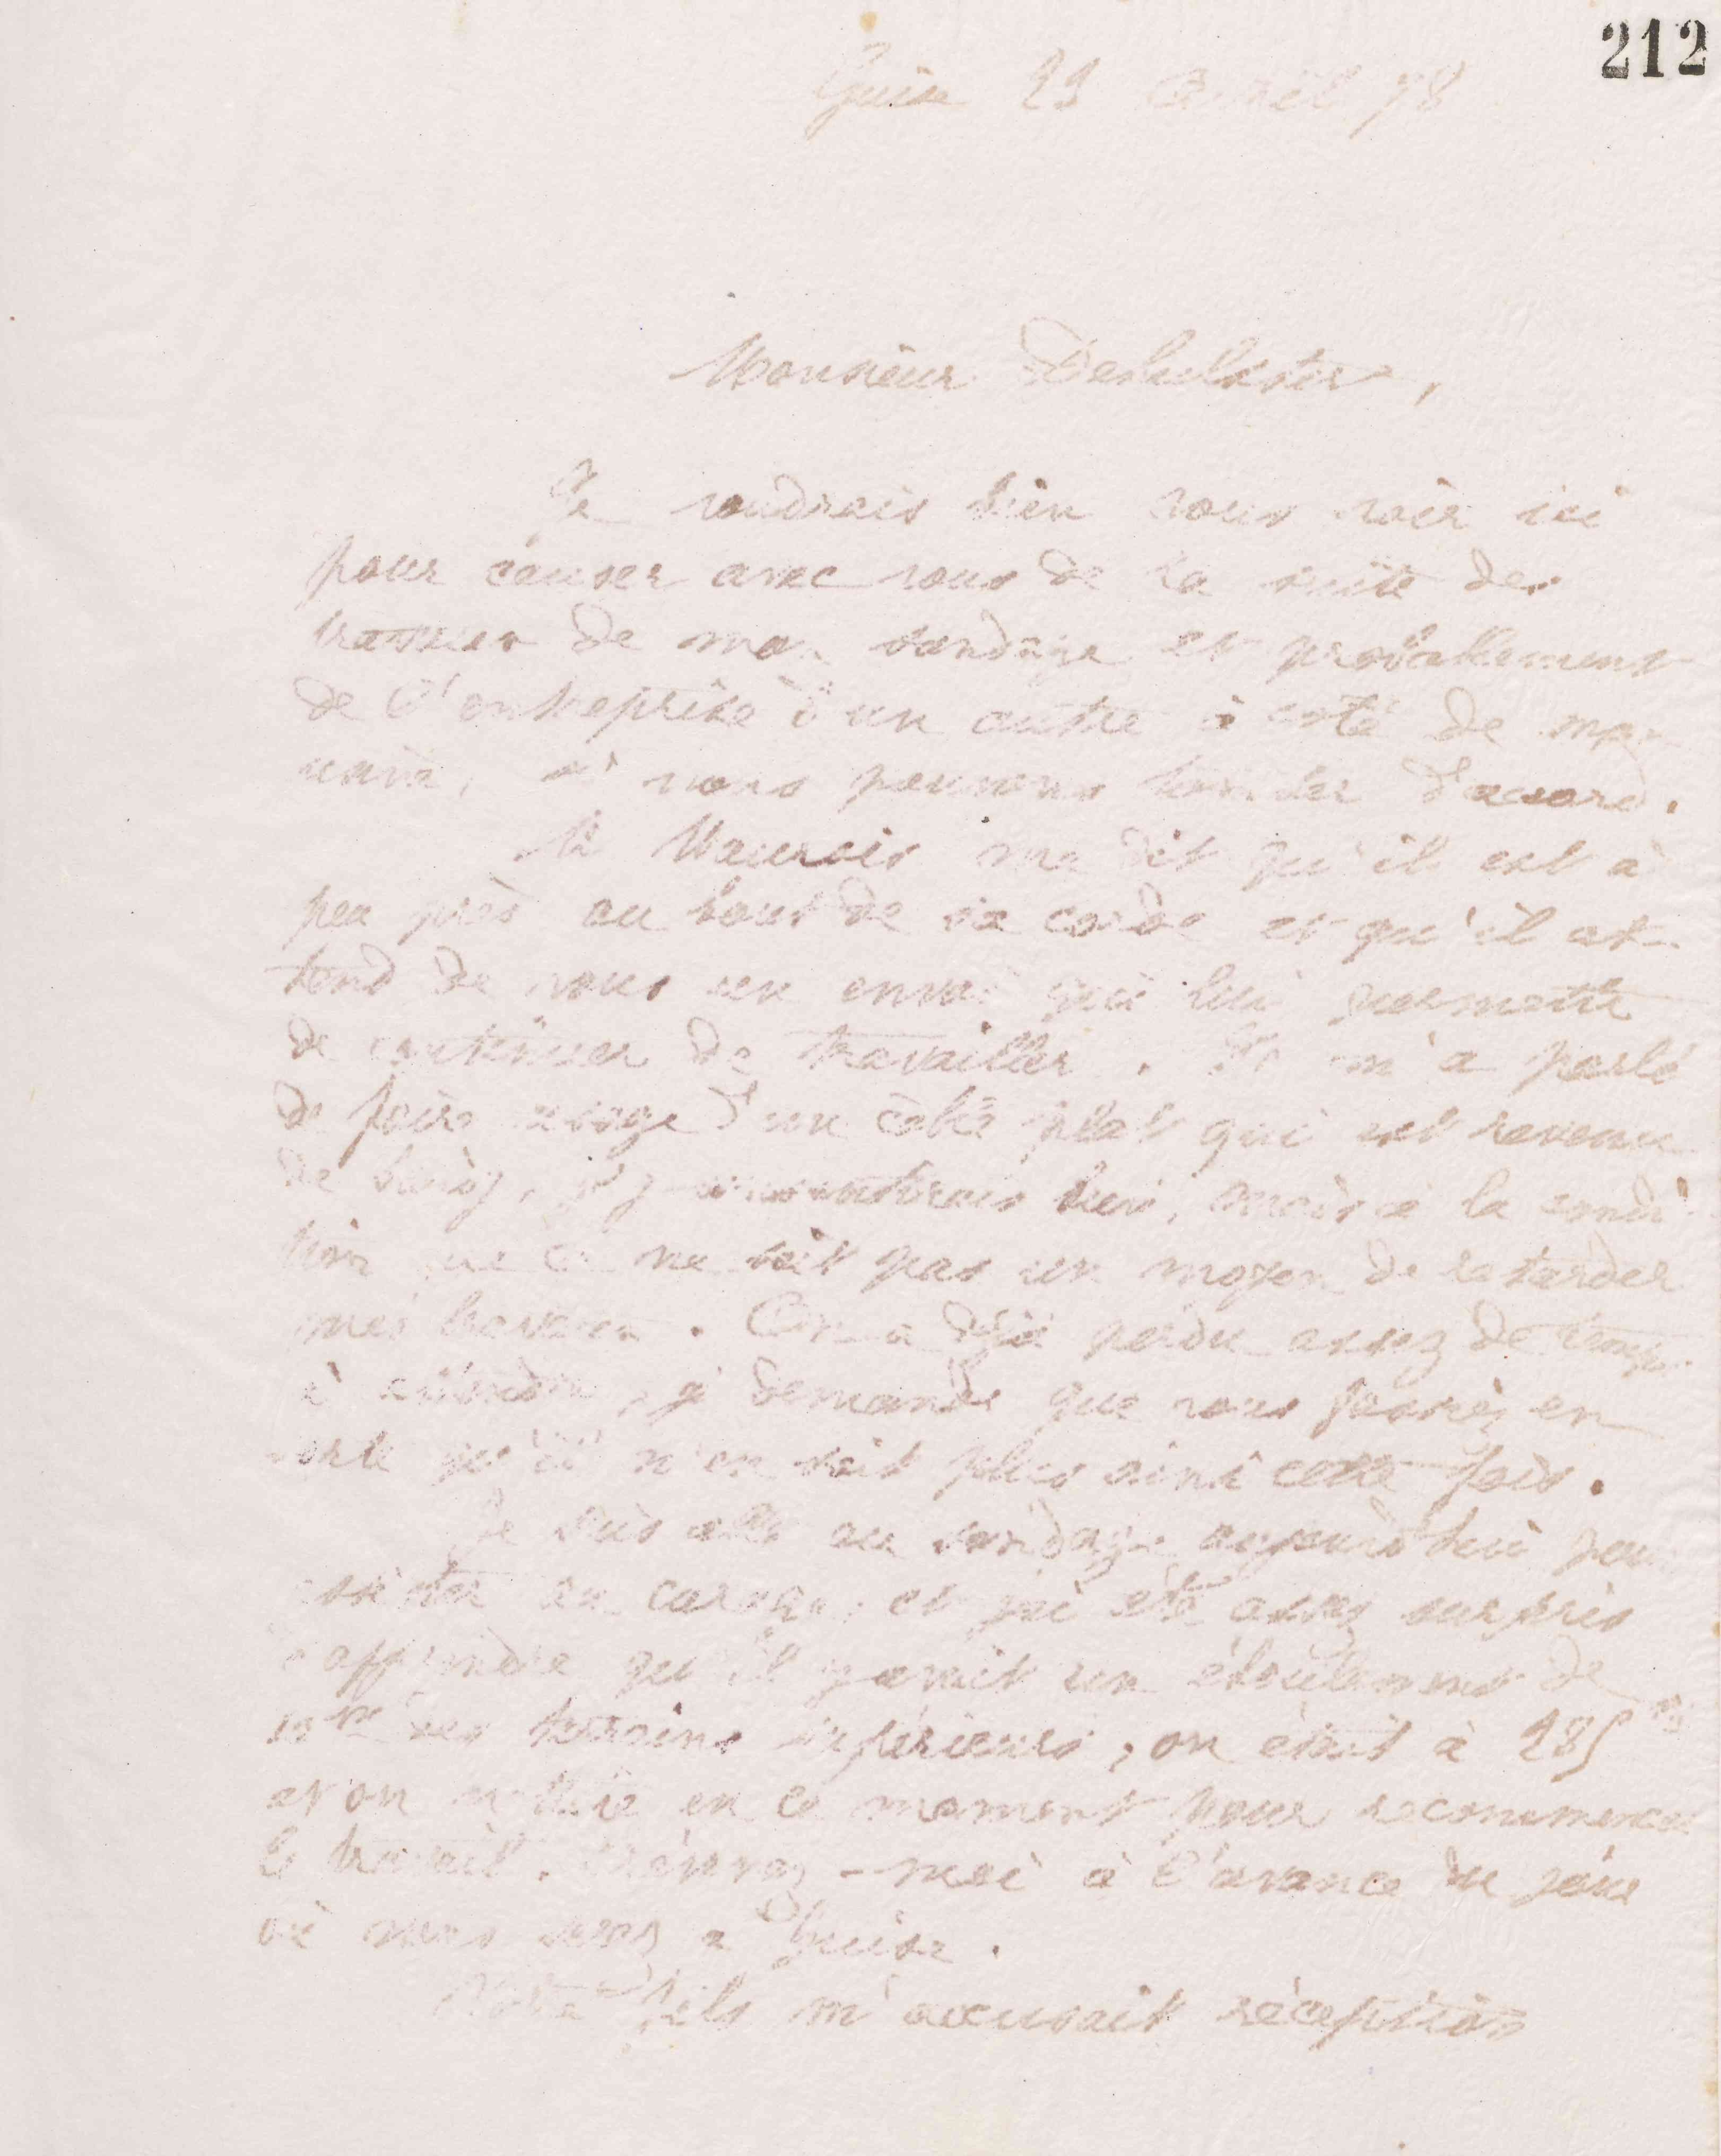 212
Guise 29 Avril 78
Monsieur
Je voudrais bien vous voir ici
pour causer avec vous de la suite des
travaux de mon sondage et probablement
de l'entreprise d'un autre à côté de mon
usine, si nous pouvons tomber d'accord.
M Maurois me dit qu'il est à
peu près au bout de sa corde et qu'il at-
tend de vous un envoi qui lui permette
de continuer de travailler. Il m'a parlé
de faire usage d'un câble plat qui est revenu
de , j'y consentirais bien, mais à la condi
tion que ce ne soit pas un moyen de retarder
mes travaux. On a déjà perdu assez de temps
à attendre, je demande que vous fassiez en
sorte qu'il n'en soit plus ainsi cette fois.
Je suis allé au sondage aujourd'hui pour
assister au et j'ai été assez surpris
d'apprendre qu'il y avait un éboulement de
des terrains inférieurs, on était à 285 m
et on en ce moment pour recommencer
le travail. Prévenez-moi à l'avance du jour
où vous serez à Guise.
Votre fils m'accusait réception